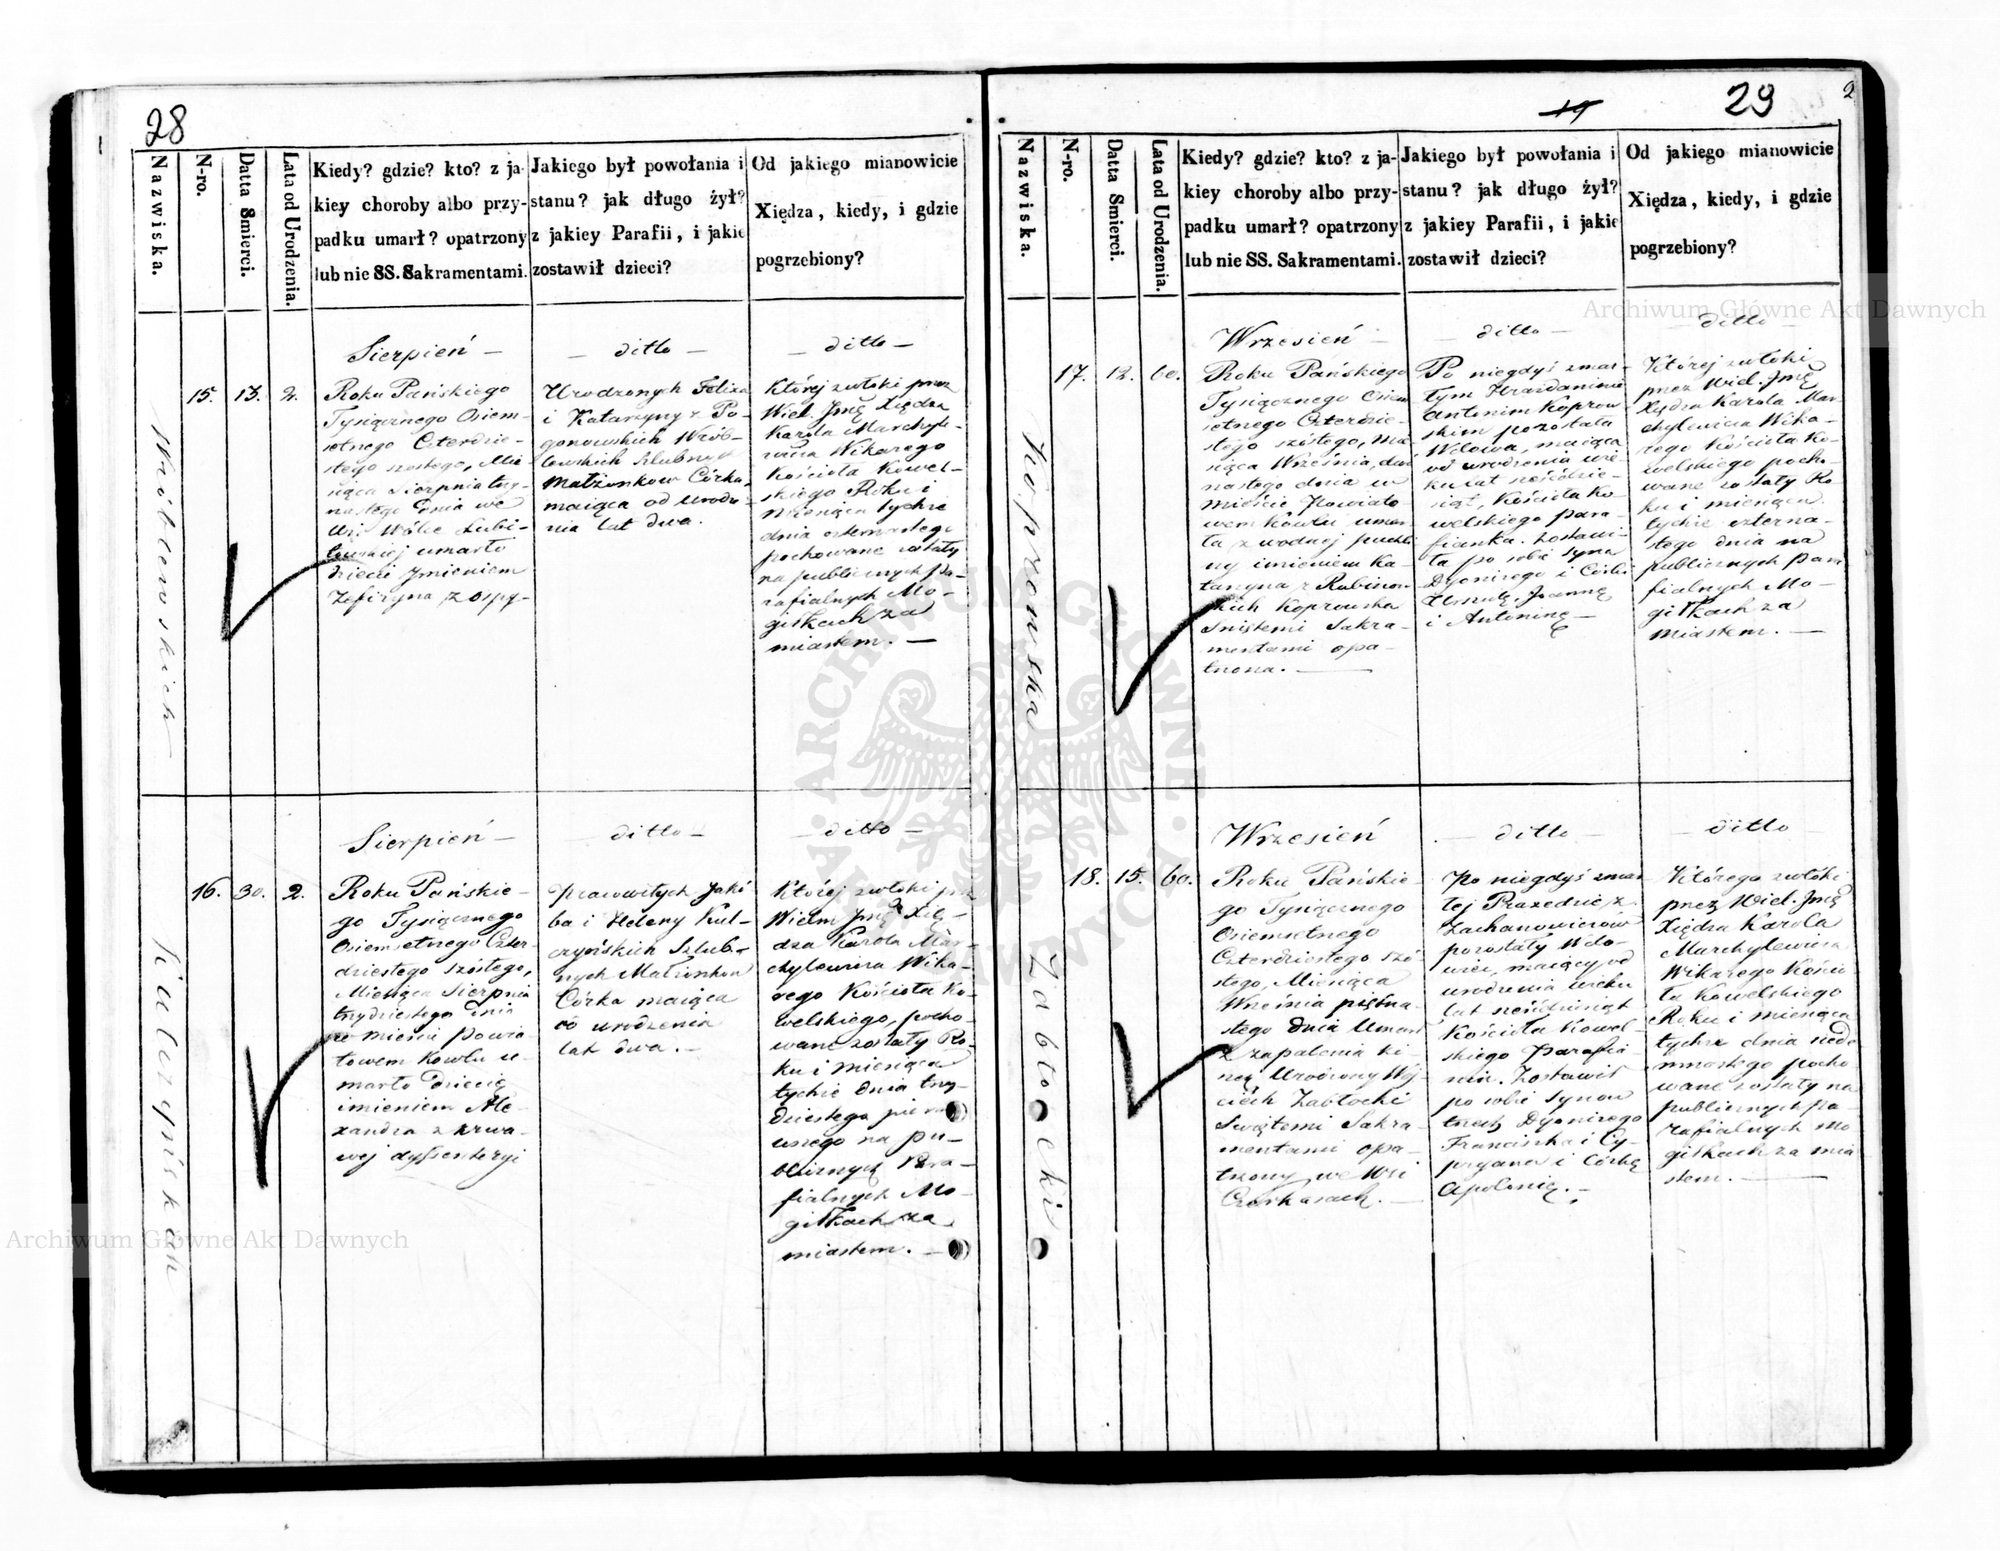 28
Nazwiska.
N-ro.
Datta Smierci.
Lata od Urodzenia.
Kiedy? gdzie? kto? z ja-
kiey choroby albo przy-
padku umarł? opatrzony
lub nie SS. Sakramentami.
Jakiego był powołania i
stanu? jak długo żył?
z jakiey Parafii, i jakie
zostawił dzieci?
Od jakiego mianowicie
Xiędza, kiedy, i gdzie
pogrzebiony?
Wróblewskich
15.
13.
2.
Sierpień —
Roku Pańskiego
Tysiącznego Osiem-
setnego Czterdzie-
stego szostego, Mie-
siąca Sierpnia trzy-
nastego Dnia we
Wsi Wólce Lubi-
towskiej umarło
Dziecie Jmieniem
Zefiryna z ospy —
— ditto —
Urodzonych Felixa
i Katarzyny z Po-
gonowskich Wrób-
lewskich Szlubnych
Małżonkow Córka,
maiąca od urodze-
nia lat dwa.
— ditto —
Której zwłoki przez
Wiel. Jmę Xiędza
Karola Marchyle-
wicza Wikarego
Kościoła Kowel-
skiego Roku i
Miesiąca tychże
dnia osmnastego
pochowane zostały
na publicznych Pa-
rafialnych Mo-
giłkach za
miastem. —
Kulczyńskich
16.
30.
2.
Sierpień —
Roku Pańskie-
go Tysiącznego
Osiemsetnego Czter-
dziestego szóstego,
Miesiąca Sierpnia
trzydziestego Dnia
w mieście Powia-
towem Kowlu u-
marło Dziecię
imieniem Ale-
xandra z krwa-
wej dyssenteryi
— ditto —
Pracowitych Jakó-
ba i Heleny Kul-
czyńskich Szlub-
nych Małżonkow
Córka maiąca
od urodzenia
lat dwa. —
— ditto —
Której zwłoki prz
Wielm Jmę Xię-
dza Karola Mar-
chylewicza Wika-
rego Kościoła Ko-
welskiego, pocho-
wane zostały Ro-
ku i miesiąca
tychże dnia trzy-
dziestego pierw
wszego na pu-
blicznych Para-
fialnych Mo-
giłkach za
miastem. —
19
29
2
Nazwiska.
N-ro.
Data Smierci.
Lata od Urodzenia.
Kiedy? gdzie? kto? z ja-
kiey choroby albo przy-
padku umarł? opatrzony
lub nie SS. Sakramentami.
Jakiego był powołania i
stanu? jak długo żył?
z jakiey Parafii, i jakie
zostawił dzieci?
Od jakiego mianowicie
Xiędza, kiedy, i gdzie
pogrzebiony?
Koprowska
17.
12.
60.
Wrzesień —
Roku Pańskiego
Tysiącznego Osiem
setnego Czterdzie-
stego szóstego, Mie-
siąca Września, dwu
nastego dnia w
mieście Powiato-
wem Kowlu umar
ła z wodnej puchli
ny imieniem Ka-
tarzyna z Rubinow-
skich Koprowska
Śniętemi Sakra-
mentami opa-
trzona. —
— ditto —
Po niegdyś zmar-
łym Urazdaninie
Antonim Koprow-
skim pozostała
Wdowa, maiąca
od urodzenia wie-
ku lat sześćdzie-
siąt, Kościoła Ko-
welskiego para-
fianka. Zostawi-
ła po sobie Syna
Dyonizego i Córki
Urszulę, Joannę
i Antoninę —
— ditto —
Której zwłoki
przez Wiel. Jmę
Xiędza Karola Mar-
chylewicza Wika-
rego Kościoła Ko-
welskiego pocho-
wane zostały Ro-
ku i miesiąca
tychże czterna-
stego dnia na
publicznych Para
fialnych Mo-
giłkach za
miastem. —
Zabłocki
18.
15.
60.
Wrzesień
Roku Pańskie-
go Tysiącznego
Osiemsetnego
Czterdziestego szó-
stego, Miesiąca
Września piętna-
stego dnia Umarł
z zapalenia ki-
szej Urodzony Woj-
ciech Zabłocki
Swiętemi Sakra-
mentami opa-
trzony we Wsi
Czerkasach. —
— ditto —
Po niegdyś zmar
łej Praxedzie z
Zachanowiczów
pozostały Wdo-
wiec, maiący od
urodzenia wieku
lat sześćdziesiąt
Kościoła Kowel-
skiego Parafia-
nin. Zostawił
po sobie Synow
trzech Dyonizego
Franciszka i Cy-
pryana i Córkę
Apolonię. —
— ditto —
Którego zwłoki
przez Wiel. Jmę
Xiędza Karola
Marchylewicza
Wikarego Kościo-
ła Kowelskiego
Roku i miesiąca
tychże dnia siede
mnastego pocho
wane zostały na
publicznych Pa-
rafialnych mo
giłkach za mia
stem. —
Archiwum Główne Akt Dawnych
Archiwum Główne Akt Dawnych
ARCHIWUM GŁÓWNE AKT DAWNYCH